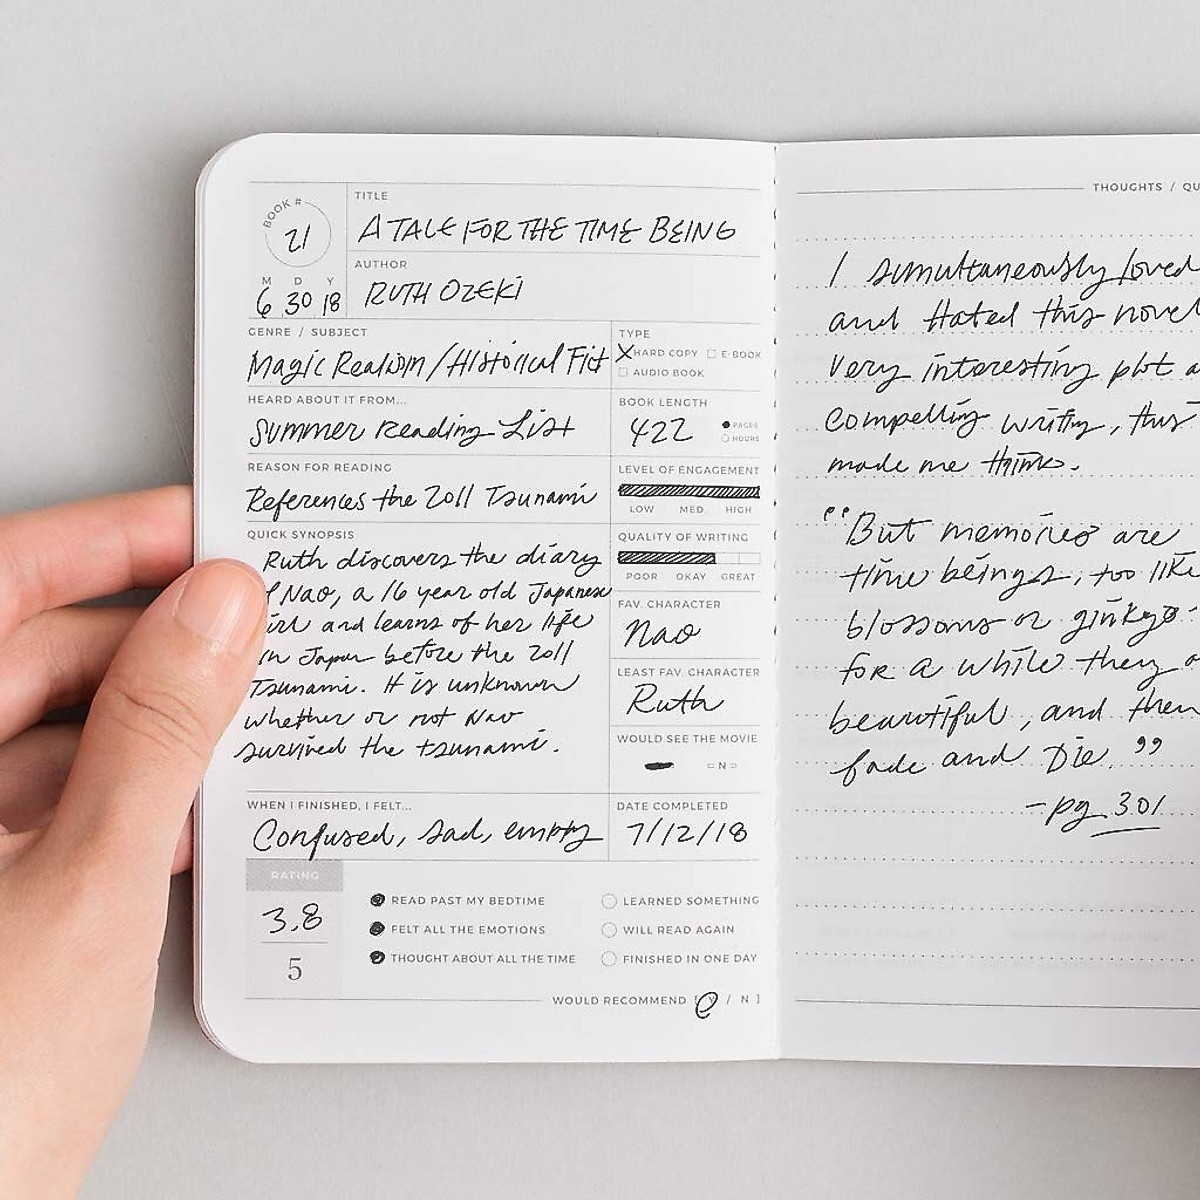 BOOK #
21
M D Y
6 30 18
TITLE
A TALE FOR THE TIME BEING
AUTHOR
RUTH OZEKI
GENRE / SUBJECT
Magic Realism / Historical Fict
TYPE
HARD COPY E-BOOK
AUDIO BOOK
HEARD ABOUT IT FROM...
Summer Reading List
BOOK LENGTH
422
PAGES
HOURS
REASON FOR READING
References the 2011 Tsunami
LEVEL OF ENGAGEMENT
LOW MED. HIGH
QUALITY OF WRITING
POOR OKAY GREAT
QUICK SYNOPSIS
Ruth discovers the diary
Nao, a 16 year old Japanese
and learns of her life
in Japan before the 2011
Tsunami. It is unknown
whether or not Nao
survived the tsunami.
FAV. CHARACTER
Nao
LEAST FAV. CHARACTER
Ruth
WOULD SEE THE MOVIE
N
WHEN I FINISHED, I FELT...
Confused, sad, empty
DATE COMPLETED
7/12/18
RATING
3.8
5
READ PAST MY BEDTIME
FELT ALL THE EMOTIONS
THOUGHT ABOUT ALL THE TIME
LEARNED SOMETHING
WILL READ AGAIN
FINISHED IN ONE DAY
WOULD RECOMMEND [ Y / N ]
THOUGHTS / QU
I simultaneously loved
and Hated this novel
Very interesting plot a
compelling writing, this
made me think.
"But memories are
time beings, too like
blossoms or ginkgo
for a while they a
beautiful, and then
fade and Die."
- pg 301